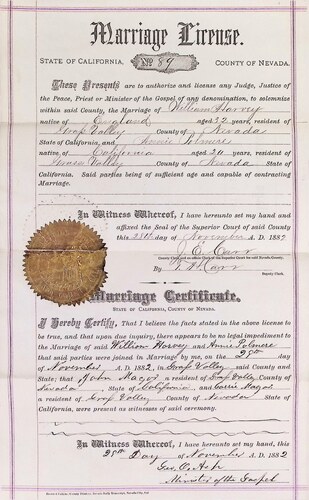 Marriage License.
STATE OF CALIFORNIA, No 89 COUNTY OF NEVADA.
These Presents are to authorize and license any Judge, Justice of
the Peace, Priest or Minister of the Gospel of any denomination, to solemnize
within said County, the Marriage of William Harvey
native of England aged 32 years, resident of
Grass Valley County of Nevada
State of California, and Annie
native of California aged 24 years, resident of
Grass Valley County of Nevada State of
California. Said parties being of sufficient age and capable of contracting
Marriage.
In Witness Whereof, I have hereunto set my hand and
affixed the Seal of the Superior Court of said County
this day of November A. D. 1882
J. E. Carr
By Carr
Deputy Clerk.
Marriage Certificate.
STATE OF CALIFORNIA, COUNTY OF NEVADA.
I Hereby Certify, That I believe the facts stated in the above license
to be true, and that upon due inquiry, there appears to be no legal impediment
to the Marriage of said William Harvey and Annie
that said parties were joined in Marriage by me, on the day
of November A. D. 1882, in Grass Valley said County and
State; that John a resident of Grass Valley County of
Nevada State of California and Carrie
a resident of Grass Valley County of Nevada State of
California, were present as witnesses of said ceremony.
In Witness Whereof, I have hereunto set my hand, this
25th Day of November A. D. 1882
Geo. C. Ash
Minister of the Gospel